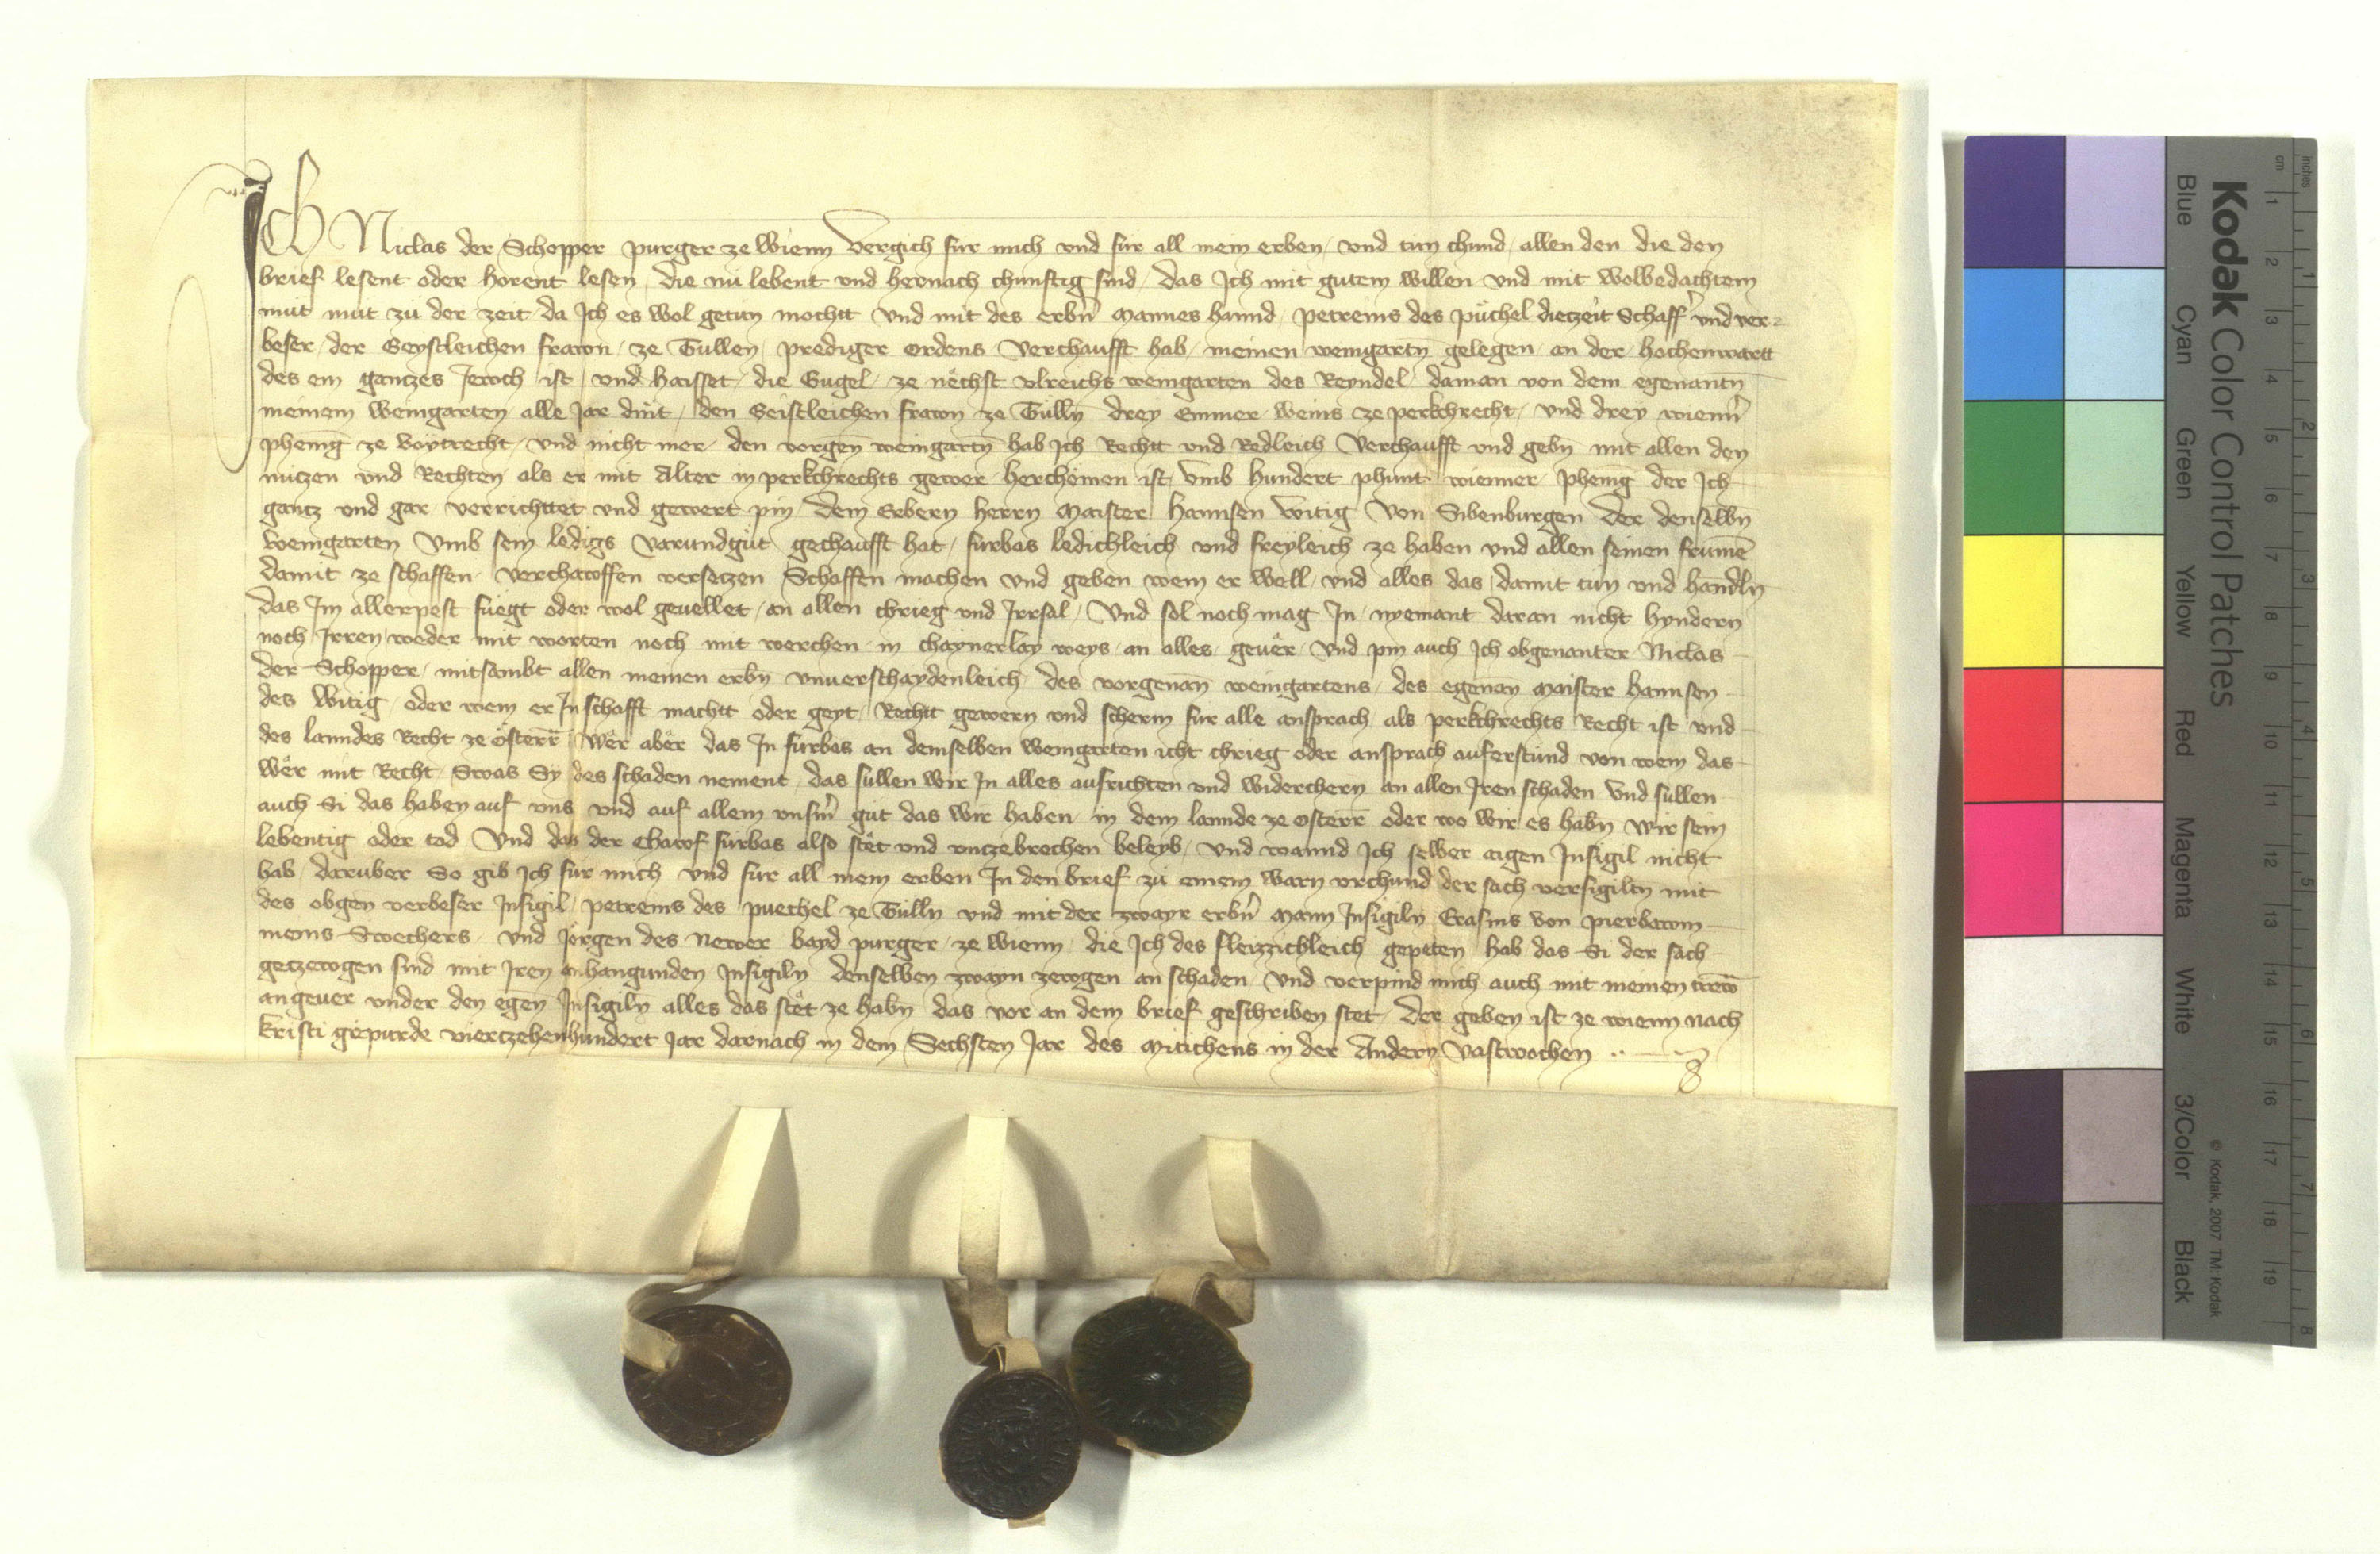 Ich Niclas der Schopper purger ze Wienn Vergich für mich vnd für all mein erben vnd tun chund allen den die den
brief lesent oder hörent lesen die nu lebent vnd hernach chunftig sind das Ich mit gutem willen vnd mit wolbedachtem
mut mut zu der zeit da Ich es wol getun mochtt Vnd mit des erbn̄ Mannes hannd petreins des püchel dietzeit Schaff vnd ver=
beser der Geystleichen frawn ze Tullen prediger ordens Verchaufft hab meinen weingartn̄ gelegen an der hochenwartt
des ein gantzes Jewch ist vnd haisset die Gugel ze nëchst vlreichs weingarten des Reyndel daman von dem egenantn̄
meinem weingarten alle Jar dint den Geistleichen frawn ze Tulln drey Emmer weins ze perkchrecht vnd drey wienn̄
pheniḡ ze voytrecht vnd nicht mer den vorgen̄ weingartn̄ hab Ich Rechtt vnd Redleich Verchaufft vnd gebn̄ mit allen den
nutzen vnd Rechten als er mit Alter in perkchrechts gewer herchömen ist vmb hundert phunt wienner pheniḡ der Ich
gantz vnd gar verrichttet vnd gewert pin dem Erbern herrn Maister hannsen witig Von Sibenburgen der denselbn̄
weingarten Vmb sein ledigs varundgüt gechaufft hat fürbas ledichleich vnd freyleich ze haben vnd allen seinen frumē
damit ze schaffen verchawffen versetzen Schaffen machen vnd geben wem er well vnd alles das damit tun vnd handln̄
das Im allerpest füegt oder wol geuellet an allen chrieg vnd Irrsal Vnd sol noch mag In nyemant daran nicht hyndern
noch Irren weder mit worten noch mit werchen in chaynerlay weys an alles geuër Vnd pin auch Ich obgenanter Niclas
der Schopper mitsambt allen meinen erbn̄ vnuerschaydenleich des vorgenan̄ weingartens des egenan̄ Maister hannsen
des witig oder wem er In schafft machtt oder geyt Rechtt gewern vnd scherm für alle ansprach als perkchrechts Recht ist vnd
des lanndes Recht ze österr̄ Wër aber das In fürbas an demselben weingarten icht chrieg oder ansprach auferstund von wem das
wër mit Recht Swas Sy des schaden nement das sullen wir In alles ausrichten vnd widerchern an allen Iren schaden Vnd sullen
auch Si das haben auf vns vnd auf allem vnsrm̄ güt das wir haben in dem lannde ze osterr̄ oder wo wir es habn̄ wir sein
lebentig oder tod Vnd das der Chawf fürbas also stët vnd vntzebrechen beleyb vnd wannd Ich selber aigen Insigil nicht
hab darüber So gib Ich für mich vnd für all mein erben In den brief zu einem warn vrchund der sach versigiltn̄ mit
des obgen̄ verbeser Insigil petreins des puechel ze Tulln vnd mit der zwayr erbn̄ Mann Insigiln Erasms von pierbawm
meins Swechers vnd Jörgen des Newer bayd purger ze wienn die Ich des fleizzichleich gepeten hab das Si der sach
getzewgen sind mit Iren anhangunden Insigiln denselben zwayn zewgen an schaden Vnd verpind mich auch mit meinen trewn̄
an geuer vnder den egen̄ Insigiln alles das stët ze habn̄ das vor an dem brief geschriben stet der geben ist ze wienn nach
kristi gepurde viertzehenhundert Jar darnach in dem Sechsten Jar des Mitichens in der Andern Vastwochen
Kodak Color Control Patches
Blue Cyan Green Yellow Red Magenta White 3/Color Black
© Kodak, 2007 TM: Kodak
inches 1 2 3 4 5 6 7 8
cm 1 2 3 4 5 6 7 8 9 10 11 12 13 14 15 16 17 18 19